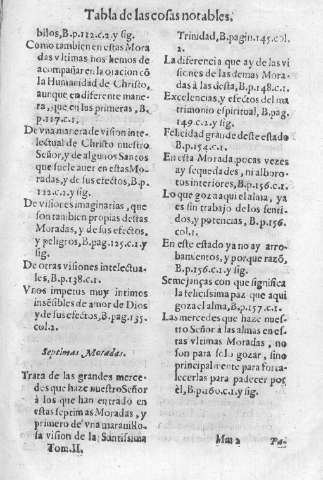 Tabla de las cosas notables.
bilos, B.p.112.c.2.y sig.
Como tambien en estas Mora
das vltimas nos hemos de
acompañar en la oracion cō
la Humanidad de Christo,
aunque en diferente mane-
ra, que en las primeras, B.
p.117.c.1.
De vna manera de vision inte
lectual de Christo nuestro
Señor, y de algunos Santos
que suele auer en estas Mo-
radas, y de sus efectos, B.p.
122.c.1.y sig.
De visiones imaginarias, que
son tambien propias destas
Moradas, y de sus efectos,
y peligros, B.pag.125.c.1.y
sig.
De otras visiones intelectua-
les, B.p.138.c.1.
Vnos impetus muy intimos
insēsibles de amor de Dios
y de sus efectos, B.pag.135.
col.2.
Septimas Moradas.
Trata de las grandes merce-
des que haze nuestro Señor
à los que han entrado en
estas septimas Moradas, y
primero de vna marauillo-
sa vision de la Santissima
Tom.II.
Trinidad, B.pagin.145.col.
2.
La diferencia que ay de las vi
siones de las demas Mora-
das à las desta, B.p.148.c.1.
Excelencias, y efectos del ma
trimonio espiritual, B.pag.
149.c.2.y sig.
Felicidad grande deste estado
B.p.154.c.1.
En esta Morada pocas vezes
ay sequedades, ni alboro-
tos interiores, B.p.156.c.1.
Lo que goza aqui el alma, ya
es sin trabajo de los senti-
dos, y potencias, B.p.156.
col.1.
En este estado ya no ay arro-
bamientos, y porque razō,
B.p.156.c.1.y sig.
Semejanças con que significa
la felicissima paz que aqui
goza el alma, B.p.157.c.1.
Las mercedes que haze nues-
tro Señor à las almas en es-
tas vltimas Moradas, no
son para solo gozar, sino
principalmente para forta-
lecerlas para padecer por
èl, B.p.160.c.1.y sig.
Mm 2 Pa-